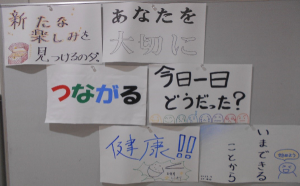 新たな
楽しみを
見つける
あなたを
大切に
つながる
今日一日
どうだった？
健康!!
いまできる
ことから